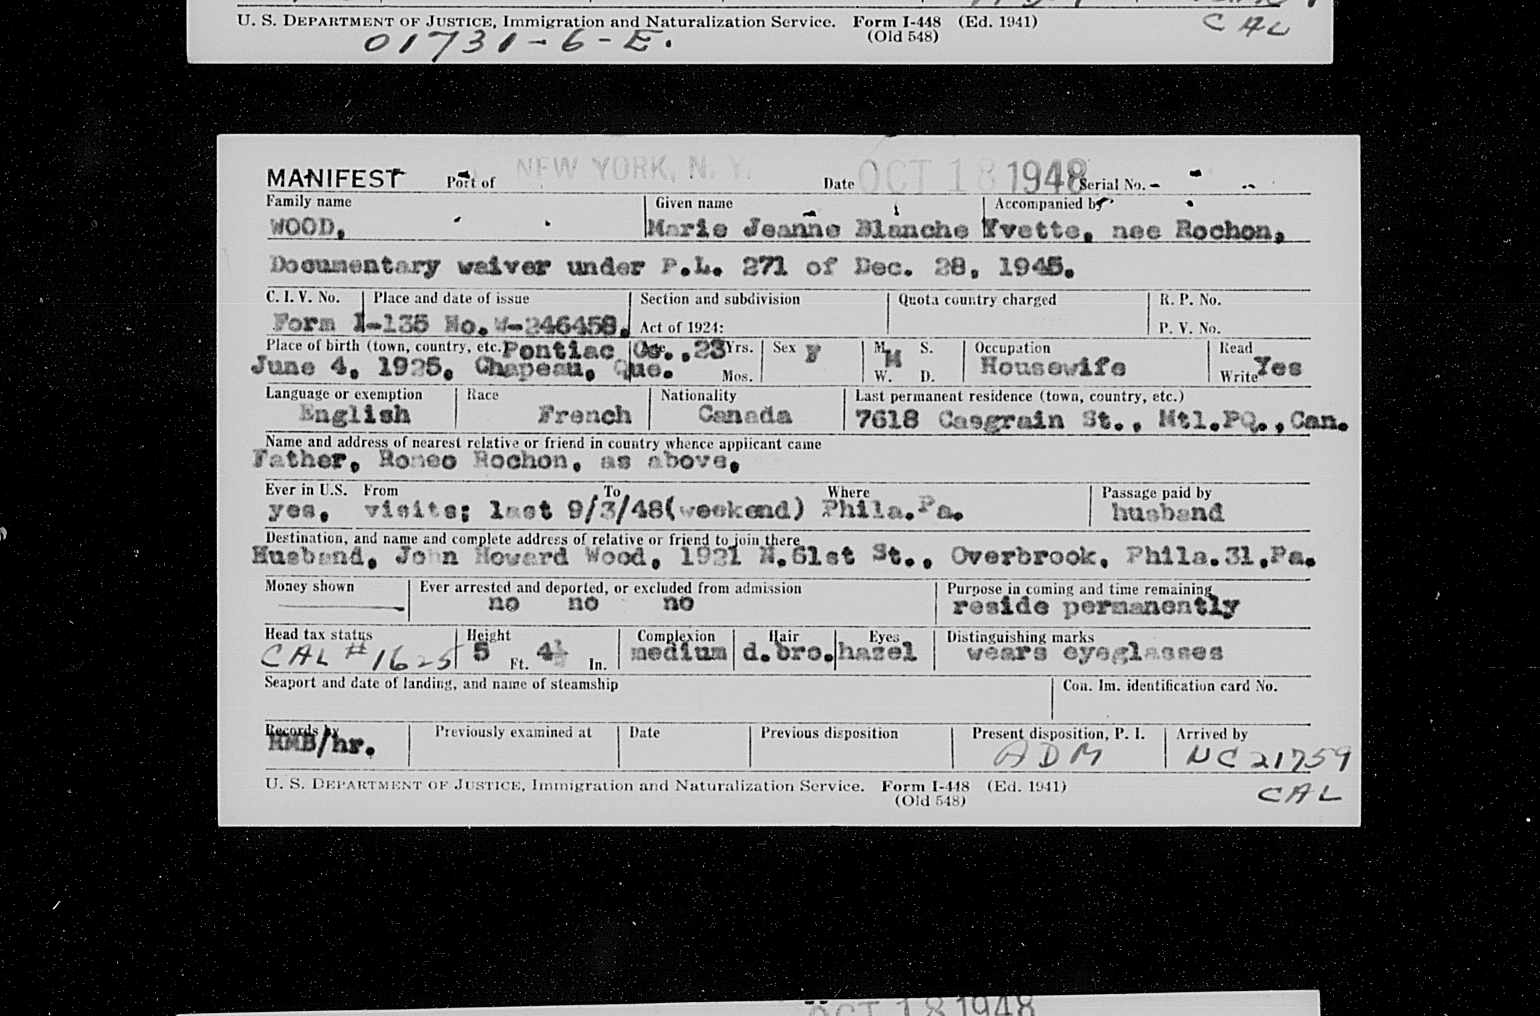 U. S. DEPARTMENT OF JUSTICE, Immigration and Naturalization Service. Form I-448 (Ed. 1941)
(Old 548)
01731-6-E.
CAL
MANIFEST Port of NEW YORK, N. Y. Date OCT 18 1948 Serial No.
Family name Given name Accompanied by
WOOD, Marie Jeanne Blanche Yvette, nee Rochon,
Documentary waiver under P.L. 271 of Dec. 28, 1945.
C. I. V. No. Place and date of issue Section and subdivision Quota country charged R. P. No.
Form I-135 No. W-246458. Act of 1924: P. V. No.
Place of birth (town, country, etc.) Pontiac Co., 23 Yrs. Sex F M. S. Occupation Read
June 4, 1925, Chapeau, Que. Mos. M W. D. Housewife Write Yes
Language or exemption Race Nationality Last permanent residence (town, country, etc.)
English French Canada 7618 Casgrain St., Mtl.PQ.,Can.
Name and address of nearest relative or friend in country whence applicant came
Father, Romeo Rochon, as above,
Ever in U.S. From To Where Passage paid by
yes, visits; last 9/3/48(weekend) Phila.Pa. husband
Destination, and name and complete address of relative or friend to join there
Husband, John Howard Wood, 1921 N.61st St., Overbrook, Phila.31,Pa.
Money shown Ever arrested and deported, or excluded from admission Purpose in coming and time remaining
no no no reside permanently
Head tax status Height Complexion Hair Eyes Distinguishing marks
CAL #1625 5 Ft. 4½ In. medium d.bro. hazel wears eyeglasses
Seaport and date of landing, and name of steamship Con. Im. identification card No.
Records by Previously examined at Date Previous disposition Present disposition, P. I. Arrived by
HMB/hr. ADM NC 21759
U. S. DEPARTMENT OF JUSTICE, Immigration and Naturalization Service. Form I-448 (Ed. 1941)
(Old 548)
CAL
OCT 18 1948